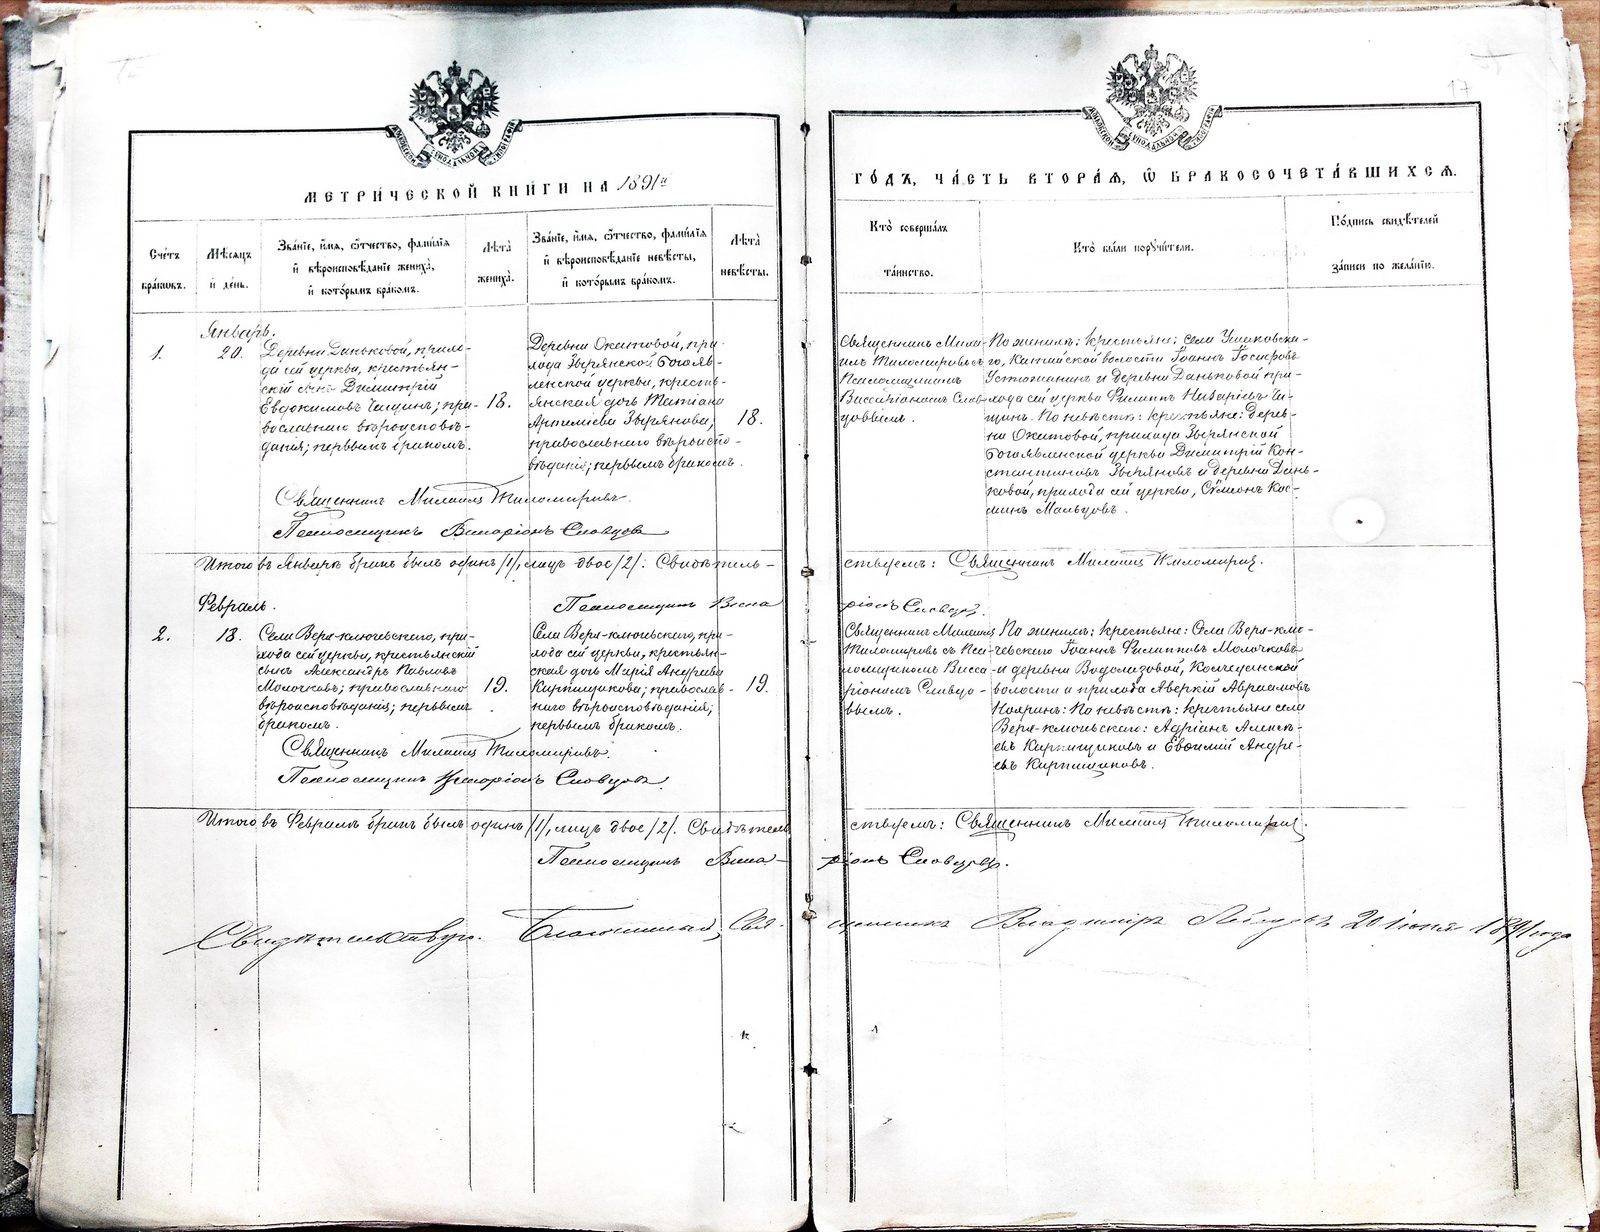 17
МЕТРИ́ЧЕСКОЙ КНИ́ГИ НА 1891й
ГО́ДЪ, ЧА́СТЬ ВТОРА́Я, Ѡ БРАКОСОЧЕТА́ВШИХСЯ.
Сче́тъ бра́ковъ.
Мѣ́сяцъ и҆ де́нь.
Зва́нїе, и҆́мя, ѻ҆́тчество, фами́лїя
и҆ вѣроисповѣ́данїе жениха̀,
и҆ кото́рымъ бра́комъ.
Лѣ́та жениха̀.
Зва́нїе, и҆́мя, ѻ҆́тчество, фами́лїя
и҆ вѣроисповѣ́данїе невѣ́сты,
и҆ кото́рымъ бра́комъ.
Лѣ́та невѣ́сты.
Кто̀ соверша́лъ
та́инство.
Кто̀ бы́ли поручи́тели.
По́дпись свидѣ́телей
за́писи по жела́нїю.
Январь.
1.
20.
Деревни Даньковой, прихо-
да сей церкви, крестьян-
скій сынъ Димитрій
Евдокимовъ; пра-
вославнаго вѣроисповѣ-
данія; первымъ бракомъ.
18.
Деревни Окатовой, при-
хода Зырянской Богояв-
ленской церкви, кресть-
янская дочь Татіана
Артемьева Зырянова,
православнаго вѣроиспо-
вѣданія; первымъ бракомъ.
18.
Священникъ Миха-
илъ Тихомировъ съ
Псаломщикомъ
Виссаріономъ Слов-
цовымъ.
По женихѣ: крестьяне: села
го, Катайской волости Іоаннъ
и деревни Даньковой при-
хода сей церкви Филиппъ Назаріевъ
По невѣстѣ: крестьяне: дерев-
ни Окатовой, прихода Зырянской
Богоявленской церкви Димитрій Кон-
стантиновъ Зыряновъ и деревни Дань-
ковой, прихода сей церкви, Сѵмеонъ Кос-
минъ Мальцовъ.
Священникъ Михаилъ Тихомировъ.
Псаломщикъ Виссаріонъ Словцовъ
Итого въ Январѣ бракъ былъ одинъ /1/, лицъ двое /2/. Свидѣтель-
ствуемъ: Священникъ Михаилъ Тихомировъ.
Псаломщикъ Висса
ріонъ Словцовъ.
Февраль.
2.
13.
Села Верх-ключевского, при-
хода сей церкви, крестьянскій
сынъ Александръ Павловъ
Молочковъ; православнаго
вѣроисповѣданія; первымъ
бракомъ.
19.
Села Верх-ключевского, при-
хода сей церкви, крестьян-
ская дочь Марія Андреева
Кирпищикова; православ-
наго вѣроисповѣданія;
первымъ бракомъ.
19.
Священникъ Михаилъ
Тихомировъ съ Пса-
ломщикомъ Висса-
ріономъ Словцо-
вымъ.
По женихѣ: крестьяне: Села Верх-клю-
чевского Іоаннъ Филипповъ Молочковъ
и деревни Водолазовой, Колчеданской
волости и прихода Аверкій Авраамовъ
Нояринъ: По невѣстѣ: крестьяне села
Верх-ключевского: Адріанъ Алексѣ-
евъ Кирпищиковъ и Евѳимій Андре-
евъ Кирпищиковъ.
Священникъ Михаилъ Тихомировъ.
Псаломщикъ Виссаріонъ Словцовъ.
Итого въ Февралѣ бракъ былъ одинъ /1/, лицъ двое /2/. Свидѣтель
ствуемъ: Священникъ Михаилъ Тихомировъ.
Псаломщикъ Висса-
ріонъ Словцовъ.
Свидѣтельствую. Благочинный, Свя-
щенникъ Владиміръ 20 іюня 1891 года